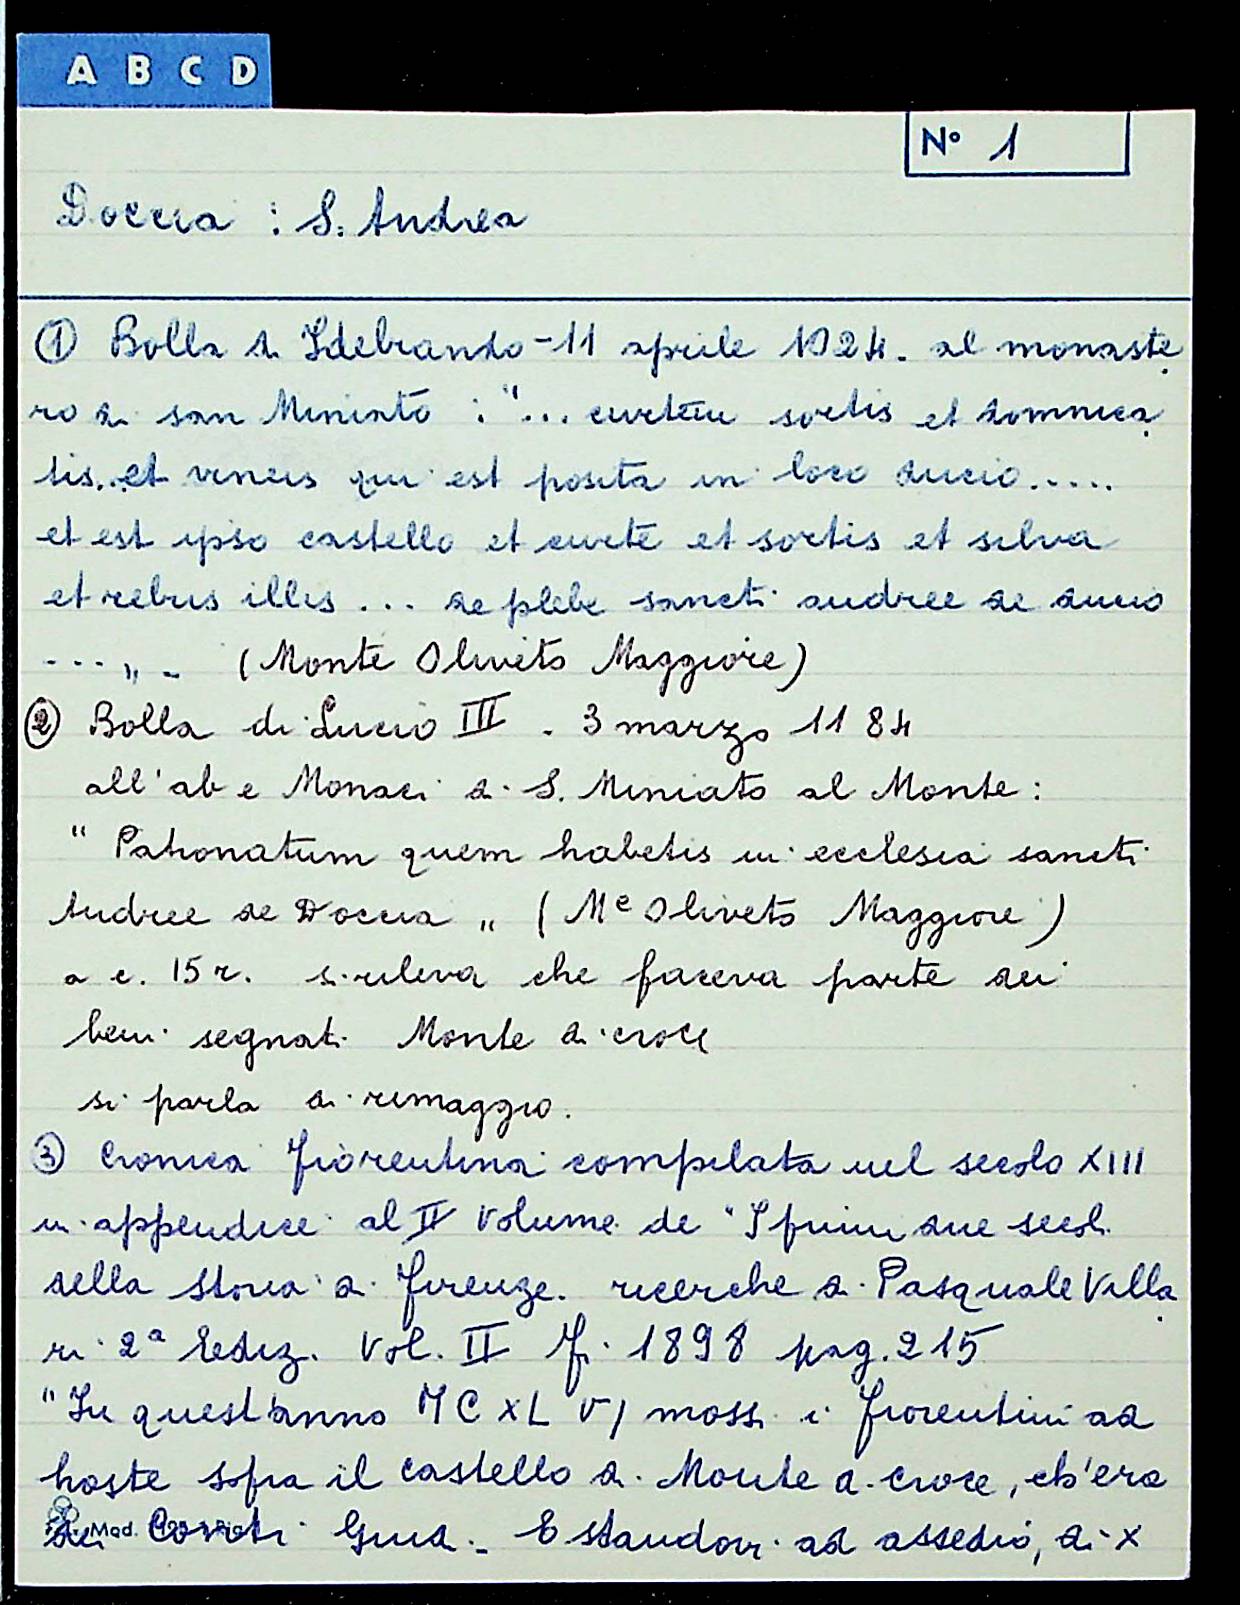 A B C D
Nº 1
Doccia : S. Andrea
① Bolla di Ildebrando - 11 aprile 1024. al monaste
ro di san Miniato : "... curtem sortis et domnica
tis. et vineis qui est posita in loco ducio.....
et est ipso castello et curte et sortis et silva
et rebus illis ... de plebe sancti andree de ducio
... „ - (Monte Oliveto Maggiore)
② Bolla di Lucio III - 3 marzo 1184
all'ab e Monaci di S. Miniato al Monte :
" Patronatum quem habetis in ecclesia sancti
Andree de Doccia „ ( Mᵉ Oliveto Maggiore )
a c. 15 r. si rileva che faceva parte dei
beni segnati Monte di croce
si parla di rimaggio.
③ Cronica fiorentina compilata nel secolo XIII
in appendice al II Volume de "I primi due secoli
della storia di Firenze. ricerche di Pasquale Villa
ri 2ª Ediz. Vol. II F. 1898 pag. 215
"In quest'anno MCXLVI mossi i fiorentini ad
hoste sopra il castello di Monte di croce, ch'era
dei Conti Guidi. E standovi ad assedio, di X
Mod.